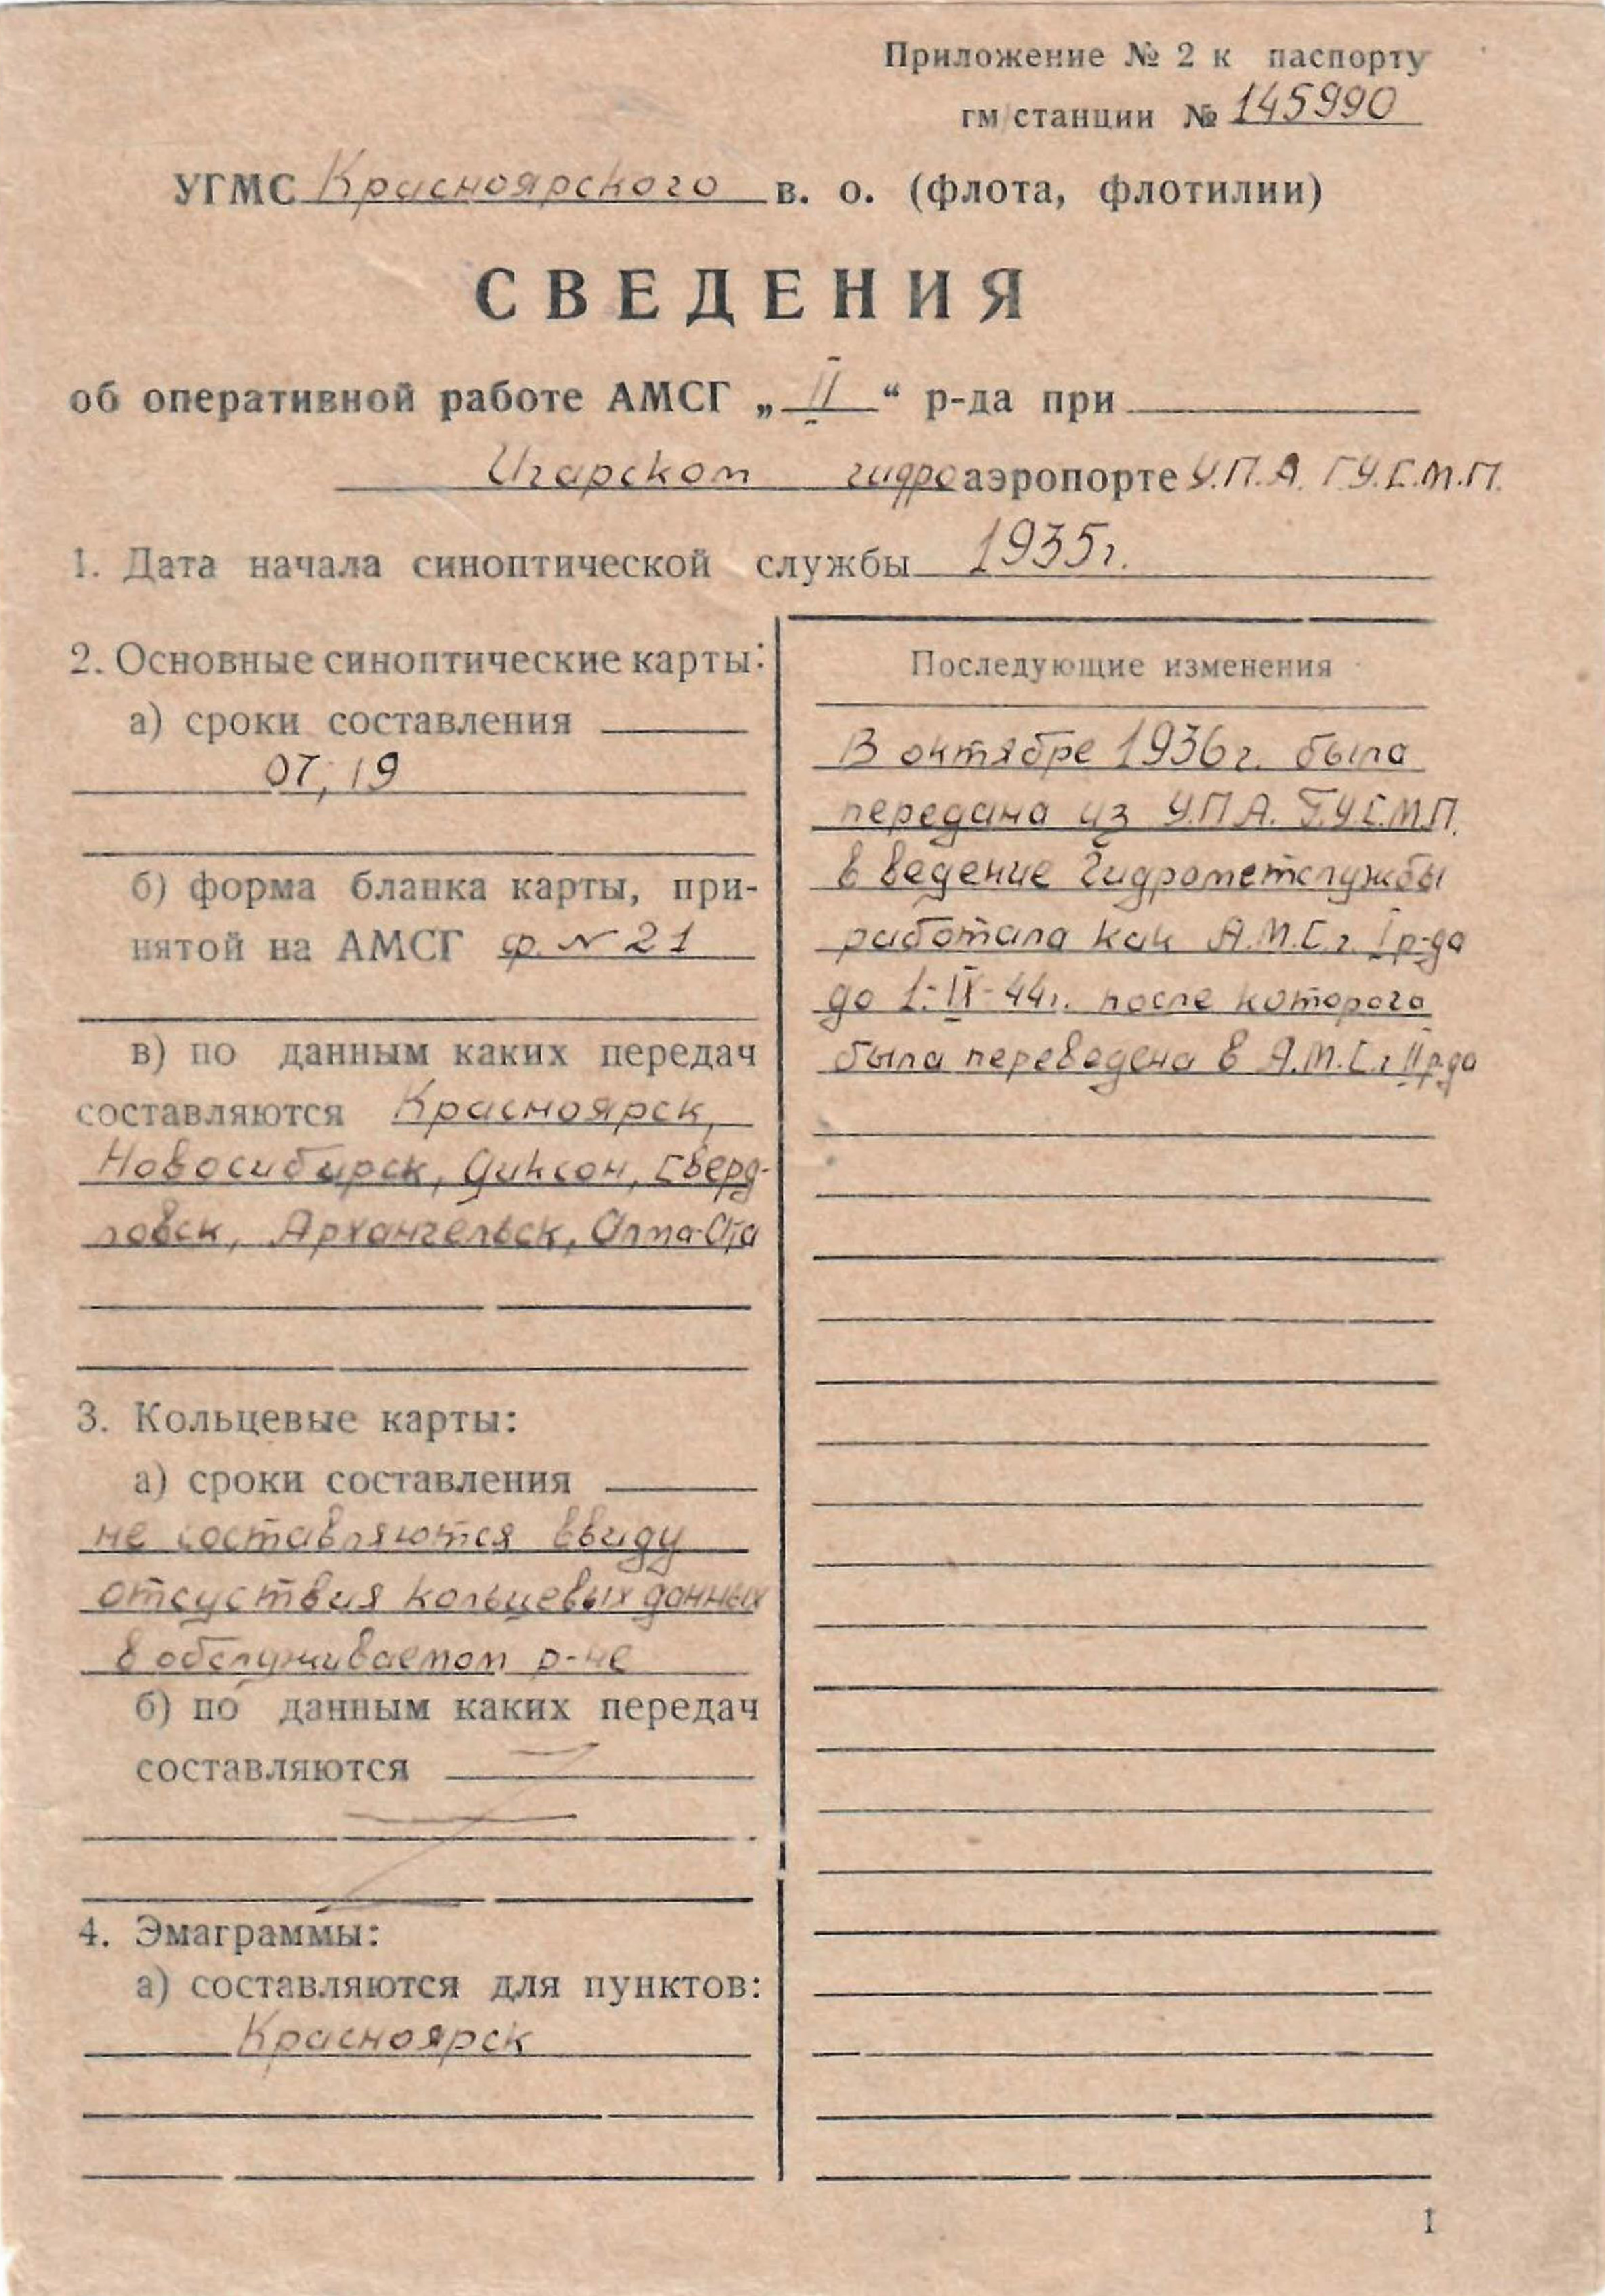 Приложение № 2 к паспорту
гм/станции № 145990
УГМС Красноярского в. о. (флота, флотилии)
СВЕДЕНИЯ
об оперативной работе АМСГ „II“ р-да при
Игарском гидроаэропорте У.П.А. Г.У.С.М.П.
1. Дата начала синоптической службы 1935г.
2. Основные синоптические карты:
а) сроки составления
07, 19
б) форма бланка карты, при-
нятой на АМСГ ф. № 21
в) по данным каких передач
составляются Красноярск,
Новосибирск, Диксон, Сверд-
ловск, Архангельск, Алма-Ата
3. Кольцевые карты:
а) сроки составления
не составляются ввиду
отсуствия кольцевых данных
в обслуживаемом р-не
б) по данным каких передач
составляются
4. Эмаграммы:
а) составляются для пунктов:
Красноярск
Последующие изменения
В октябре 1936г. была
передана из У.П.А. Г.У.С.М.П.
в ведение Гидрометслужбы
работала как А.М.С.г. I р-да
до 1-IX-44г. после которого
была переведена в А.М.С.г II р-да
1